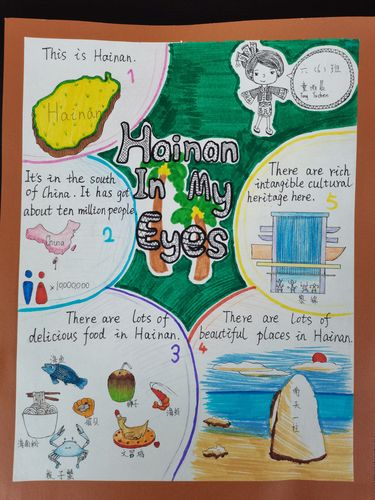 This is Hainan.
1
Hainan
六(6)班
Hainan
In My
Eyes
It's in the south
of China. It has got
about ten million people
2
China
×10000000
There are rich
intangible cultural
heritage here.
5
黎锦
There are lots of
delicious food in Hainan.
3
海鱼
椰子
海虾
海南粉
扇贝
文昌鸡
椰子蟹
There are lots of
beautiful places in Hainan.
4
南天一柱